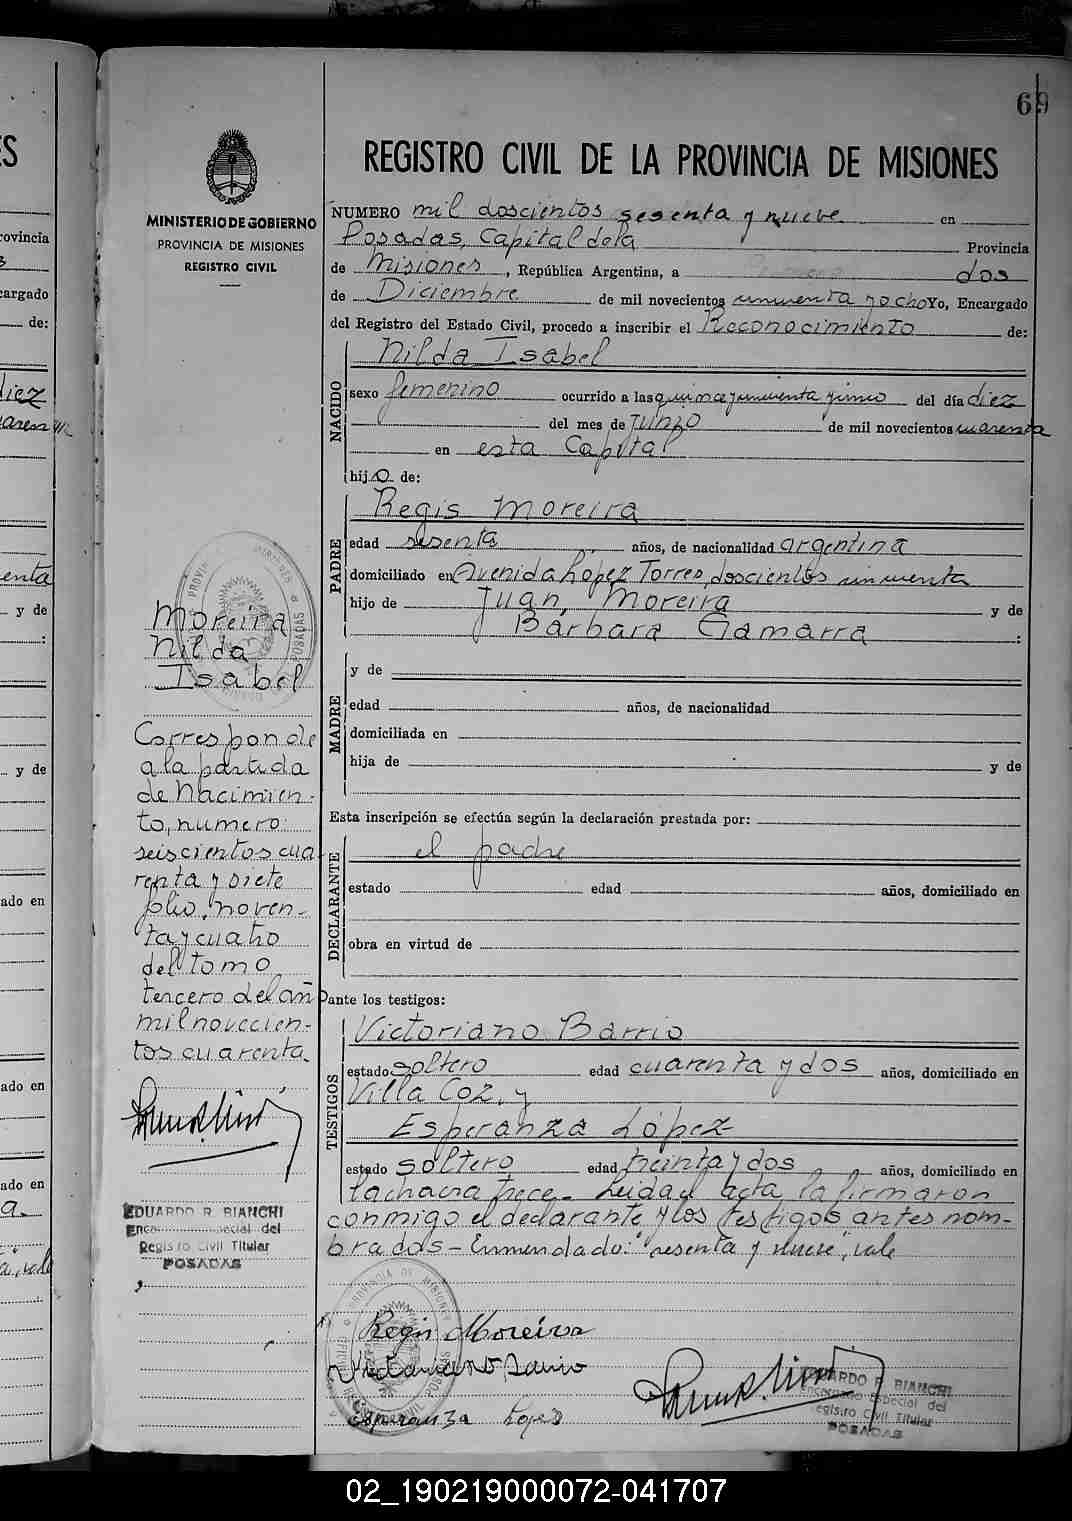 69
REGISTRO CIVIL DE LA PROVINCIA DE MISIONES
MINISTERIO DE GOBIERNO
PROVINCIA DE MISIONES
REGISTRO CIVIL
NUMERO mil doscientos sesenta y nueve en
Posadas, Capital de la Provincia
de Misiones, República Argentina, a dos
de Diciembre de mil novecientos cincuenta y ocho Yo, Encargado
del Registro del Estado Civil, procedo a inscribir el Reconocimiento de:
NACIDO
Nilda Isabel
sexo femenino ocurrido a las quince y cincuenta y cinco del día diez
del mes de Junio de mil novecientos cuarenta
en esta Capital
hijo de:
PADRE
Regis Moreira
edad sesenta años, de nacionalidad argentina
domiciliado en Avenida López Torres, doscientos cincuenta
hijo de Juan Moreira y de
Bárbara Gamarra :
MADRE
y de
edad años, de nacionalidad
domiciliada en
hija de y de
Esta inscripción se efectúa según la declaración prestada por:
DECLARANTE
el padre
estado edad años, domiciliado en
obra en virtud de
ante los testigos:
TESTIGOS
Victoriano Barrio
estado soltero edad cuarenta y dos años, domiciliado en
Villa Coz, y
Esperanza López
estado soltero edad treinta y dos años, domiciliado en
la chacra trece. Leida el acta, la firmaron
conmigo el declarante y los testigos antes nom-
brados - Enmendado: "sesenta y nueve", vale
Regis Moreira
Victoriano Barrio
Esperanza Lopez
EDUARDO R. BIANCHI
Encargado Especial del
Registro Civil Titular
POSADAS
Moreira
Nilda
Isabel
Corresponde
a la partida
de Nacimien-
to, numero
seiscientos cua
renta y siete
folio, noven-
ta y cuatro
del tomo
tercero del año
mil novecien-
tos cuarenta.
EDUARDO R. BIANCHI
Enca especial del
Registro Civil Titular
POSADAS
ES
rovincia
cargado
de:
diez
enta
y de
:
y de
ado en
ado en
ado en
a.
02_190219000072-041707